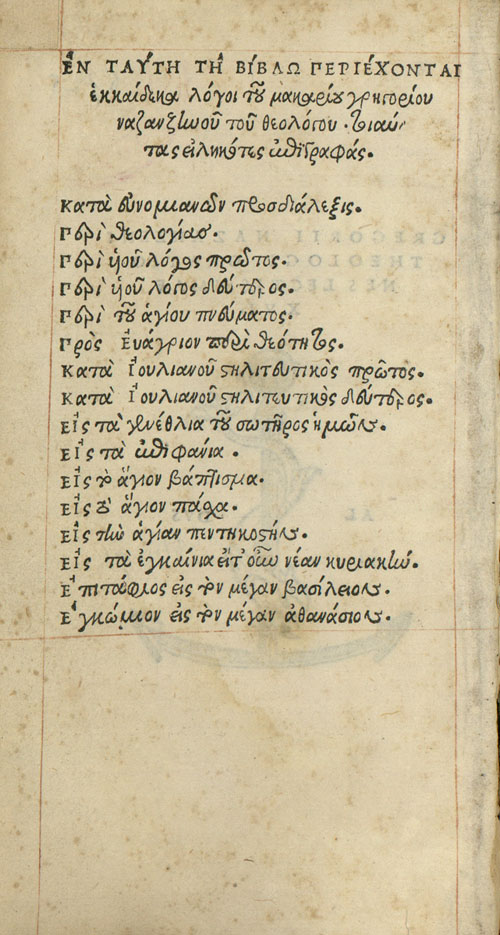 ἘΝ ΤΑΎΤΗ ΤΗ͂ ΒΊΒΛΩ ΠΕΡΙΈΧΟΝΤΑΙ
ἑκκαίδεκα λόγοι τοῦ μακαρίου γρηγορίου
ναζανζηνοῦ τοῦ θεολόγου. τοιαύ
τας εἰληκότες ἐπιγραφάς.
Κατὰ εὐνομιανῶν προσδιάλεξις.
Περὶ θεολογίας.
Περὶ ὑοῦ λόγος πρῶτος.
Περὶ ὑοῦ λόγος δεύτερος.
Περὶ τοῦ ἁγίου πνεύματος.
Πρὸς Ἐυάγριον περὶ θεότητος.
Κατὰ Ἰουλιανοῦ στηλιτευτικὸς πρῶτος.
Κατὰ Ἰουλιανοῦ στηλιτευτικὸς δεύτερος.
Εἰς τὰ γενέθλια τοῦ σωτῆρος ἡμῶν.
Εἰς τὰ ἐπιφάνια.
Εἰς τὸ ἅγιον βάπτισμα.
Εἰς τὸ ἅγιον πάσχα.
Εἰς τὴν ἁγίαν πεντηκοστήν.
Εἰς τὰ ἐγκαίνια εἴτ' οὖν νέαν κυριακήν.
Ἐπιτάφιος εἰς τὸν μέγαν βασίλειον.
Ἐγκώμιον εἰς τὸν μέγαν ἀθανάσιον.